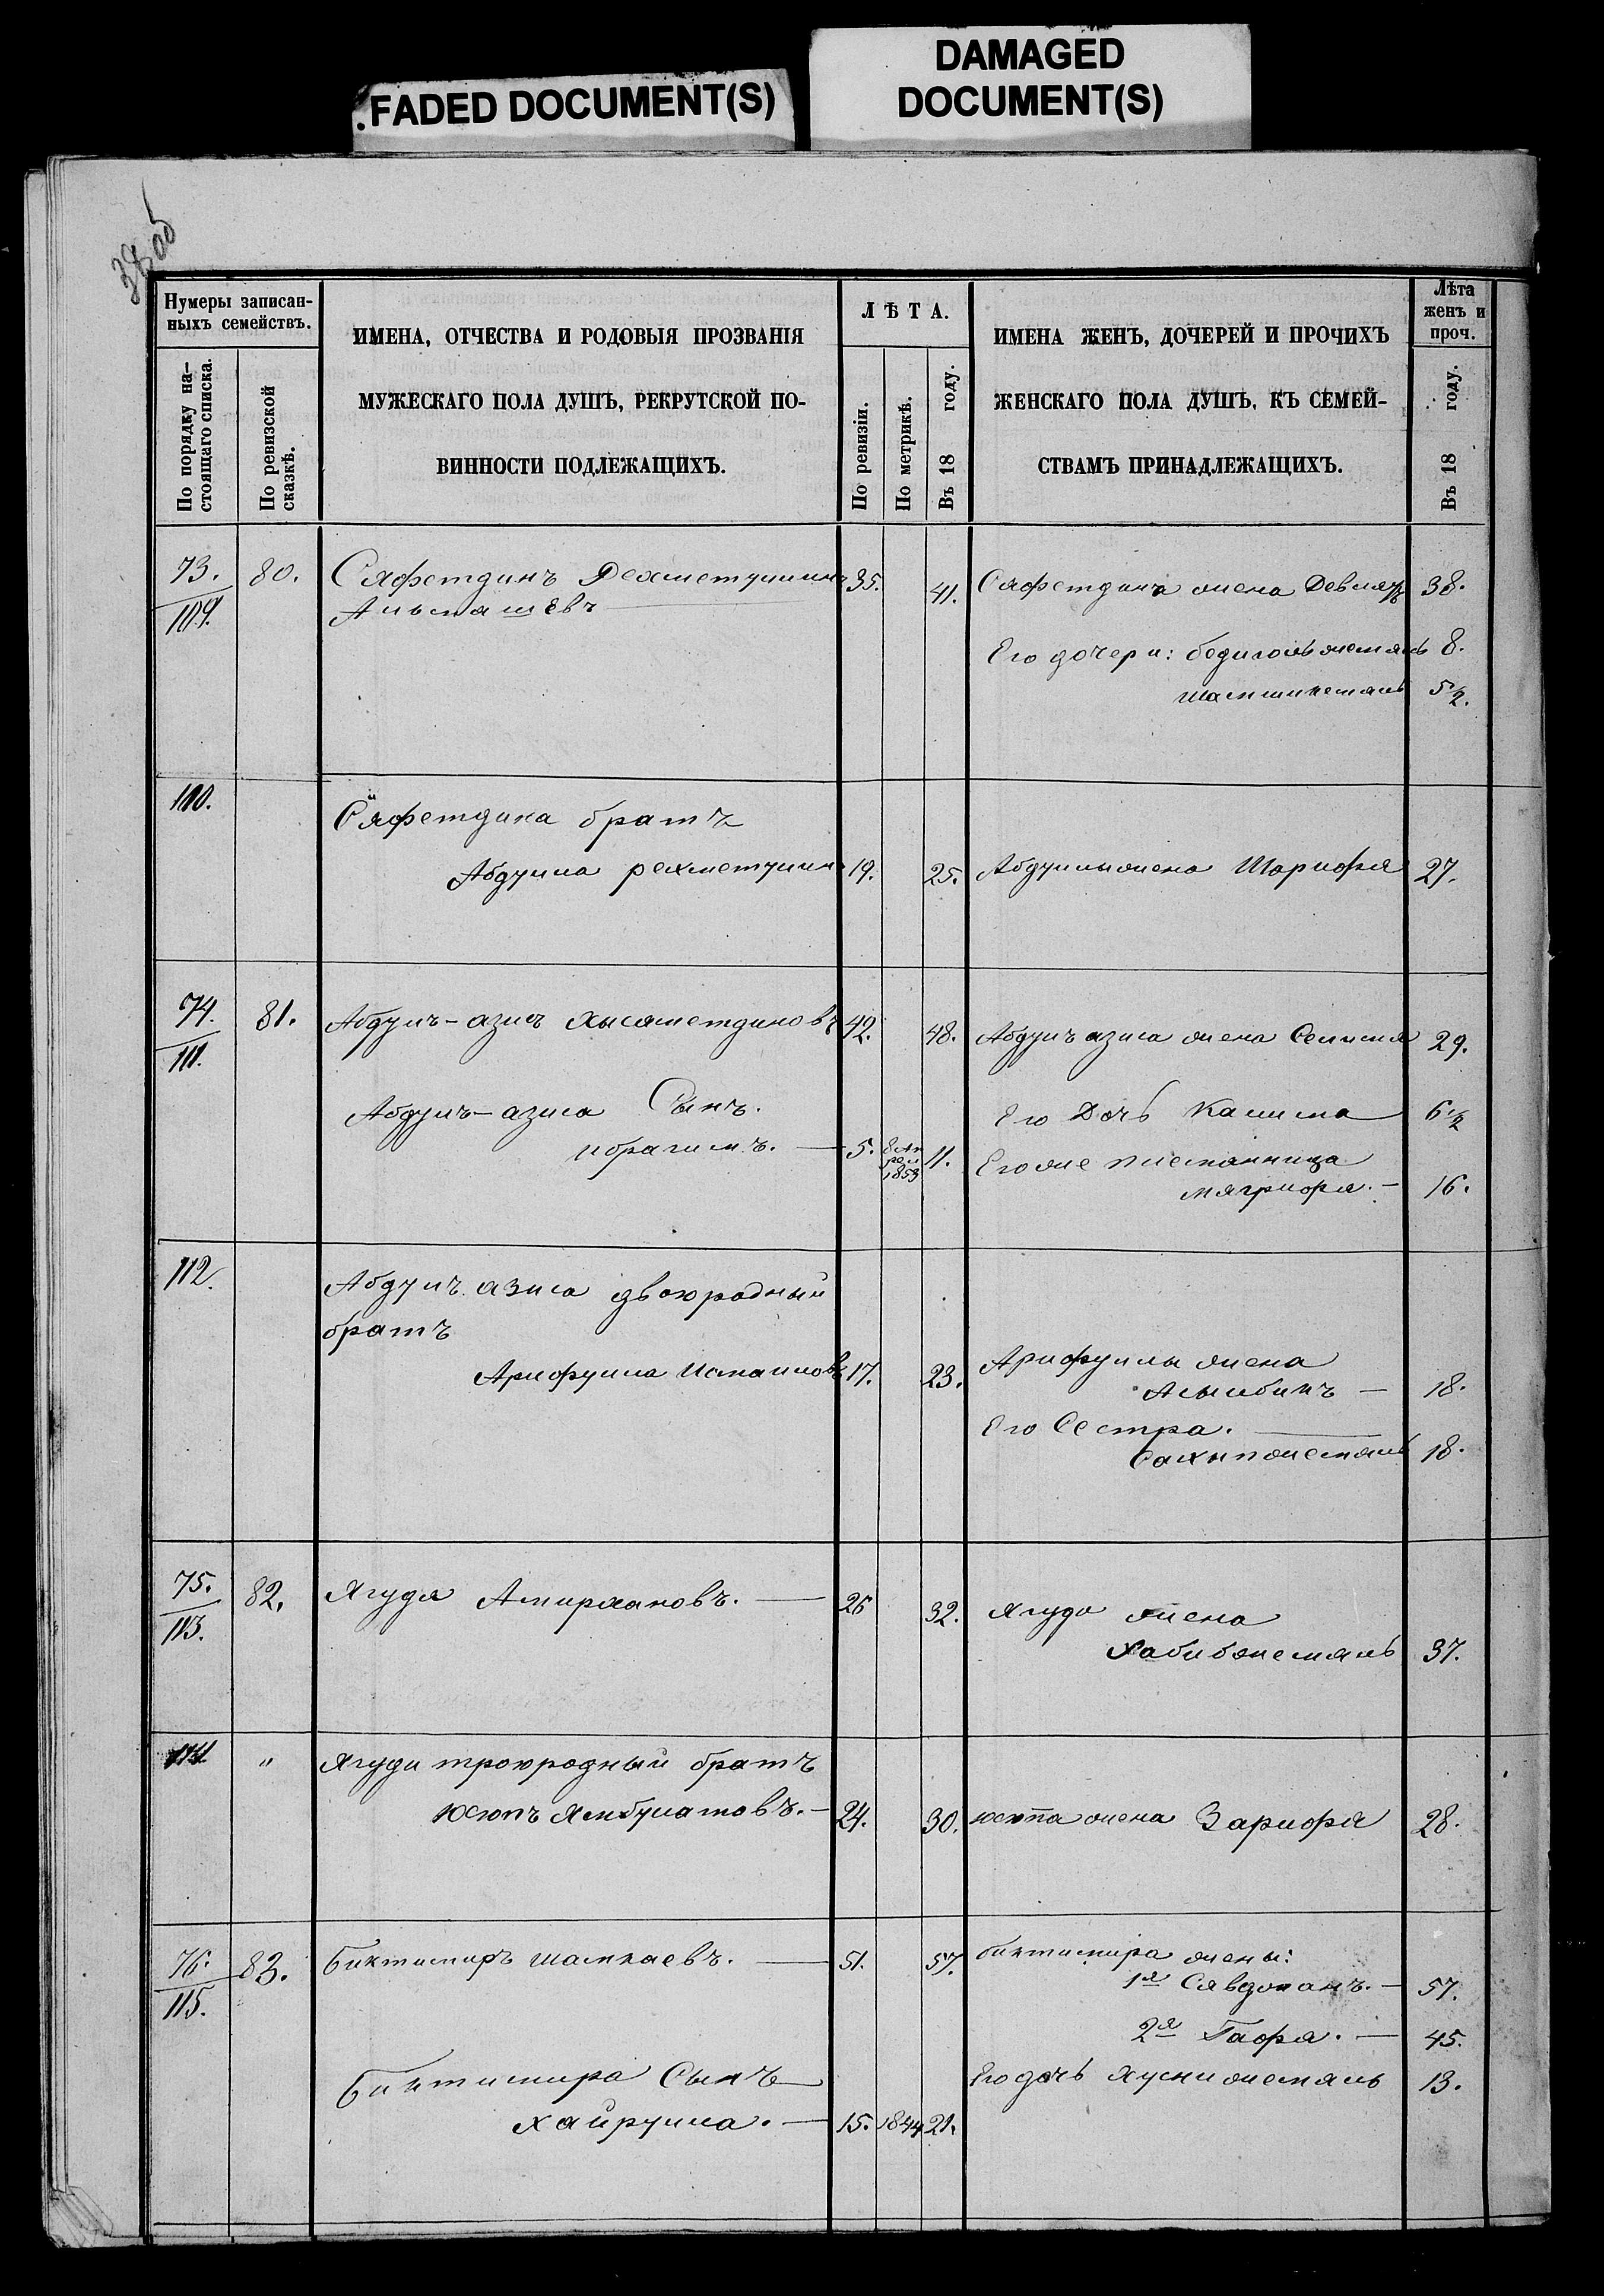 FADED DOCUMENT(S)
DAMAGED
DOCUMENT(S)
38 об
Нумеры записан-
ныхъ семействъ.
По порядку на-
стоящаго списка.
По ревизской
сказкѣ.
ИМЕНА, ОТЧЕСТВА И РОДОВЫЯ ПРОЗВАНІЯ
МУЖЕСКАГО ПОЛА ДУШЪ, РЕКРУТСКОЙ ПО-
ВИННОСТИ ПОДЛЕЖАЩИХЪ.
ЛѢТА.
По ревизіи.
По метрикѣ.
Въ 18 году.
ИМЕНА ЖЕНЪ, ДОЧЕРЕЙ И ПРОЧИХЪ
ЖЕНСКАГО ПОЛА ДУШЪ, КЪ СЕМЕЙ-
СТВАМЪ ПРИНАДЛЕЖАЩИХЪ.
Лѣта
женъ и
проч.
Въ 18 году.
73. 80. Сяфетдинъ Рехметуллинъ 35. 41. Сяфетдина жена 38.
109. Альмашевъ
Его дочери: 8.
5½.
110. Сяфетдина братъ
Абдулла рехметуллинъ 19. 25. Абдуллы жена Шарифя 27.
74. 81. Абдулъ-азисъ Хисаметдиновъ 42. 48. Абдулъ азиса жена Селима 29.
111.
Абдулъ-азиса Сынъ. Его Дочь Калима 6½
ибрагимъ. — 5. 8 Ап 11. Его же племянница
рел
1853 мягрифя. — 16.
112. Абдулъ азиса двоюродный
братъ
Арифулла Исмаиловъ 17. 23. Арифуллы жена
— 18.
Его Сестра.
18.
75. 82. Ягудя Амирхановъ. — 26 32. Ягуди жена
113. Хабибжемаль 37.
114 " Ягуди троюродный братъ
Юсюпъ Ямбулатовъ. — 24. 30. Юсюпа жена Зарифя 28.
76. 83. биктимиръ шамкаевъ. — 51. 57. биктимира жены:
115. 1я — 57.
2я Гафя. — 45.
биктимира Сынъ Его дочь Хуснижемаль 13.
хайрулла. — 15. 1844 21.